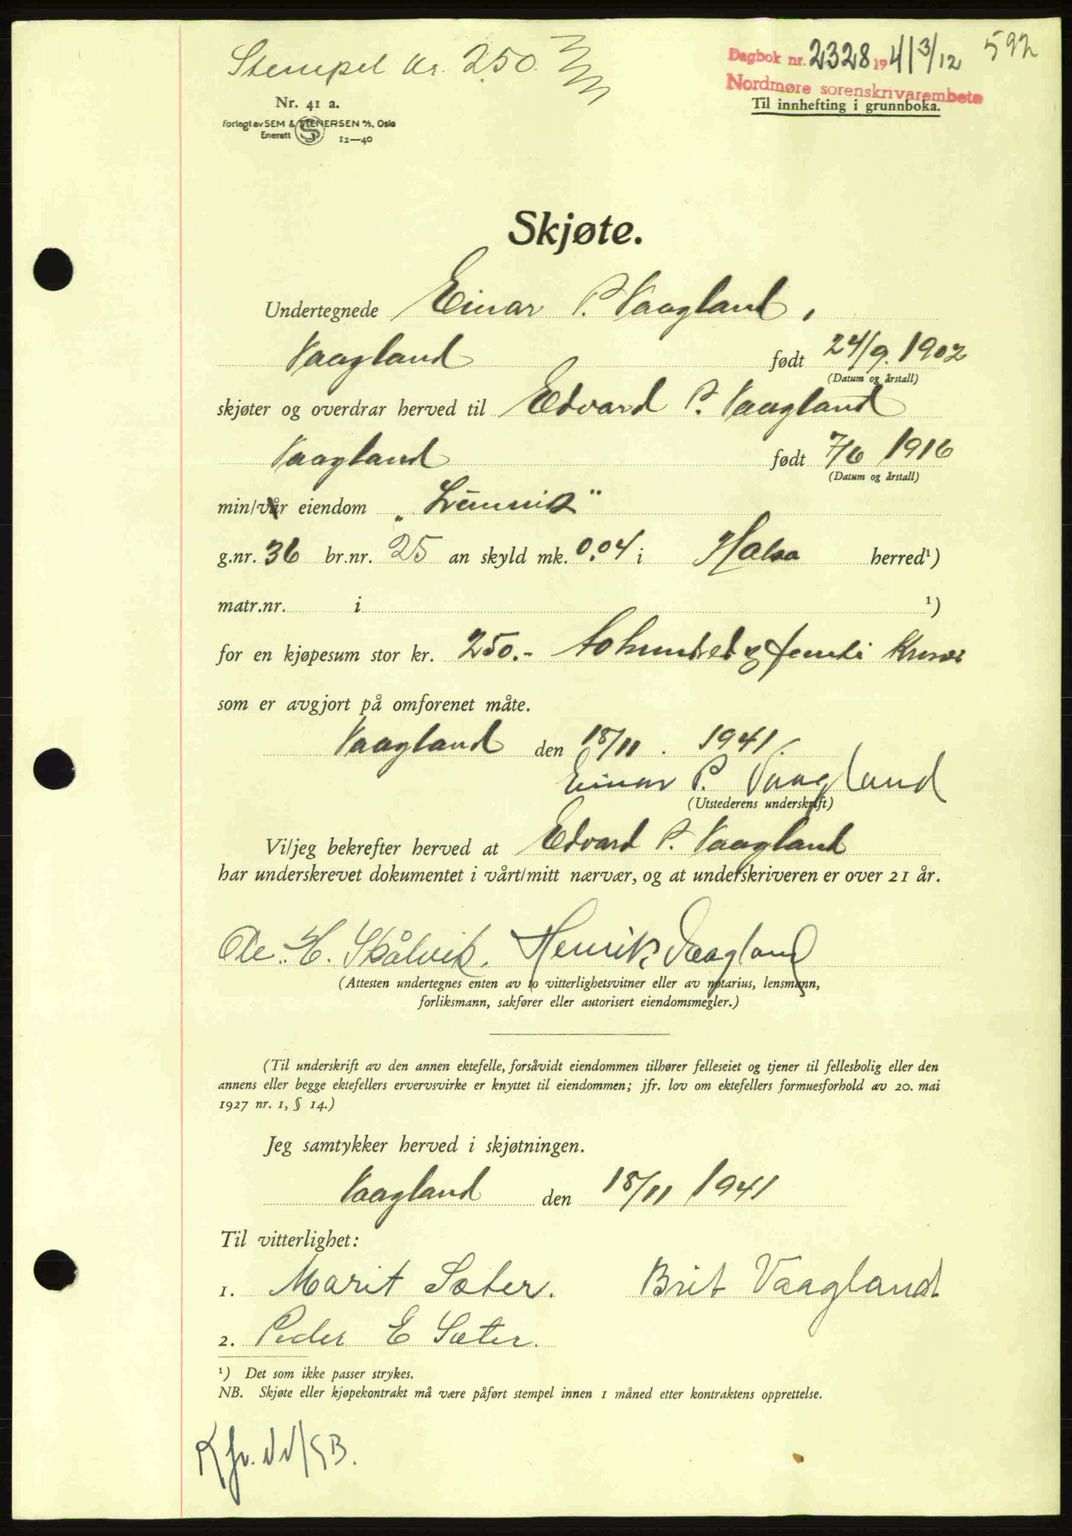 Stempel kr. 2.50.
Dagbok nr. 2328 1941 3/12 592
Nordmøre sorenskrivarembete
Til innhefting i grunnboka.
Nr. 41 a.
Forlagt av SEM & STENERSEN A/S, Oslo
Enerett S 12—40
Skjøte.
Undertegnede Einar P. Vaagland,
Vaagland født 24/9. 1902
(Datum og årstall)
skjøter og overdrar herved til Edvard P. Vaagland
Vaagland født 7/6 1916
(Datum og årstall)
min/vår eiendom „ "
g.nr. 36 br.nr. 25 an skyld mk. 0.04 i Halsa herred¹)
matr.nr. i ¹)
for en kjøpesum stor kr. 250.- tohundrel og femti Kroner
som er avgjort på omforenet måte.
Vaagland den 18/11. 1941
Einar P. Vaagland
(Utstederens underskrift)
Vi/jeg bekrefter herved at Edvard P. Vaagland
har underskrevet dokumentet i vårt/mitt nærvær, og at underskriveren er over 21 år.
Ole H. Skålvik. Henrik Vaagland
(Attesten undertegnes enten av to vitterlighetsvitner eller av notarius, lensmann,
forliksmann, sakfører eller autorisert eiendomsmegler.)
(Til underskrift av den annen ektefelle, forsåvidt eiendommen tilhører felleseiet og tjener til fellesbolig eller den
annens eller begge ektefellers ervervsvirke er knyttet til eiendommen; jfr. lov om ektefellers formuesforhold av 20. mai
1927 nr. 1, § 14.)
Jeg samtykker herved i skjøtningen.
Vaagland den 18/11 1941
Til vitterlighet:
1. Marit Sæter. Brit Vaagland
2. Peder E Sæter.
¹) Det som ikke passer strykes.
NB. Skjøte eller kjøpekontrakt må være påført stempel innen 1 måned etter kontraktens opprettelse.